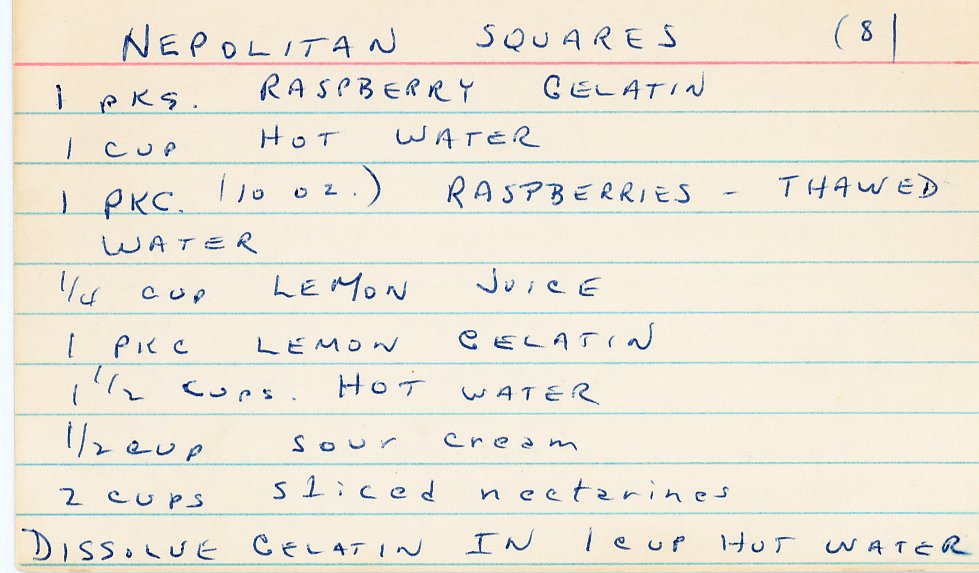 NEPOLITAN SQUARES (8)
1 PKG. RASPBERRY GELATIN
1 CUP HOT WATER
1 PKG. (10 OZ.) RASPBERRIES - THAWED
WATER
1/4 CUP LEMON JUICE
1 PKG LEMON GELATIN
1 1/2 CUPS. HOT WATER
1/2 CUP sour cream
2 CUPS sliced nectarines
DISSOLVE GELATIN IN 1 CUP HOT WATER